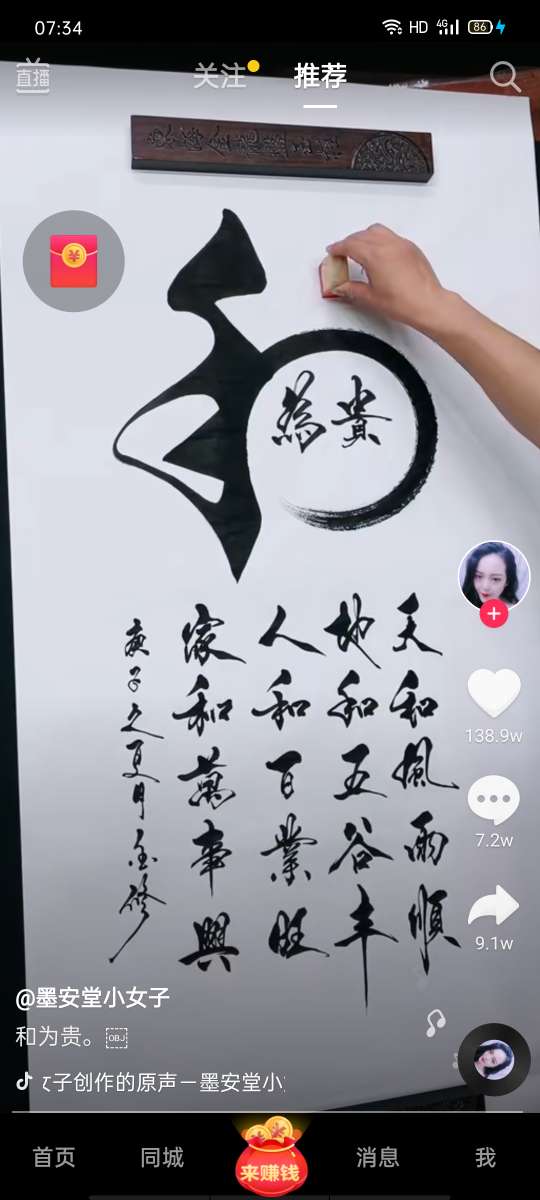 07:34
HD 4G 86
直播
关注
推荐
和
為貴
天和風雨順
地和五谷丰
人和百業旺
家和萬事興
庚子之夏月金修
138.9w
7.2w
9.1w
@墨安堂小女子
和为贵。OBJ
子创作的原声－墨安堂小
首页
同城
来赚钱
消息
我